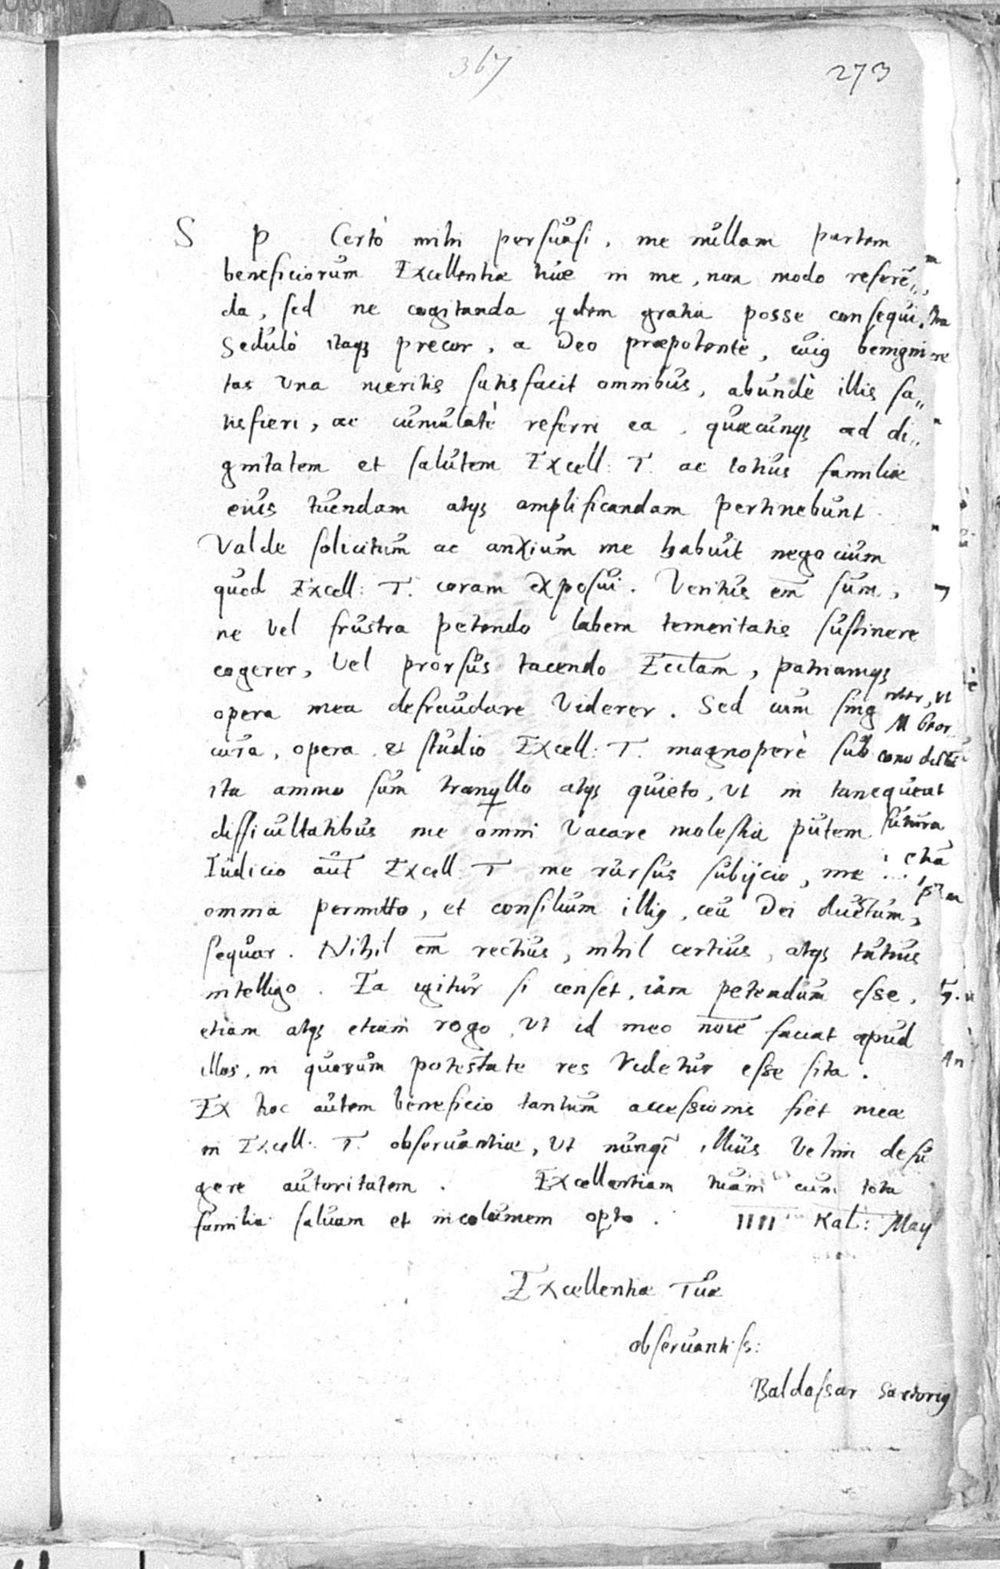 367
273
S P Certò mihi persuasi, me nullam partem
beneficiorum Excellentiæ tuæ in me, non modo referē„
da, sed ne cogitanda qdem gratia posse consequi.
Sedulò itaqȝ precor, a Deo præpotente, cuiꝰ benigni
tas una meritis satisfacit omnibus, abundè illis sa„
tisfieri, ac cumulatè referri ea, quæcunqȝ ad di„
gnitatem et salutem Excell: T. ac totius familiæ
eius tuendam atqȝ amplificandam pertinebunt.
Valde solicitum ac anxium me habuit negocium
quod Excell: T. coram exposui. Veritus em̄ sum,
ne vel frustra petendo labem temeritatis sustinere
cogerer, vel prorsus tacendo Eccl̄am, patriamqȝ
opera mea defraudare viderer. Sed cum sing
cura, opera et studio Excell: T. magnoperè sub
ita animo sum tranqllo atqȝ quieto, ut in tan
difficultatibus me omni vacare molestia putem
Iudicio aūt Excell T me rursus subijcio, me
omnia permitto, et consilium illiꝰ, ceu Dei ductum,
sequor. Nihil em̄ rectius, nihil certius, atqȝ tutius
intelligo. Ea igitur si censet, iam petendum esse,
etiam atqȝ etiam rogo, ut id meo noīe faciat apud
illos, in quorum potestate res videtur esse sita.
Ex hoc autem beneficio tantum accessionis fiet meæ
in Excell: T. observantiæ, ut nunq̄ illius velim defu
gere autoritatem. Excellentiam tuam cum tota
familia salvam et incolumem opto. IIII Kal: Maij
Excellentiæ Tuæ
observantiss:
Baldassar Sartoriꝰ